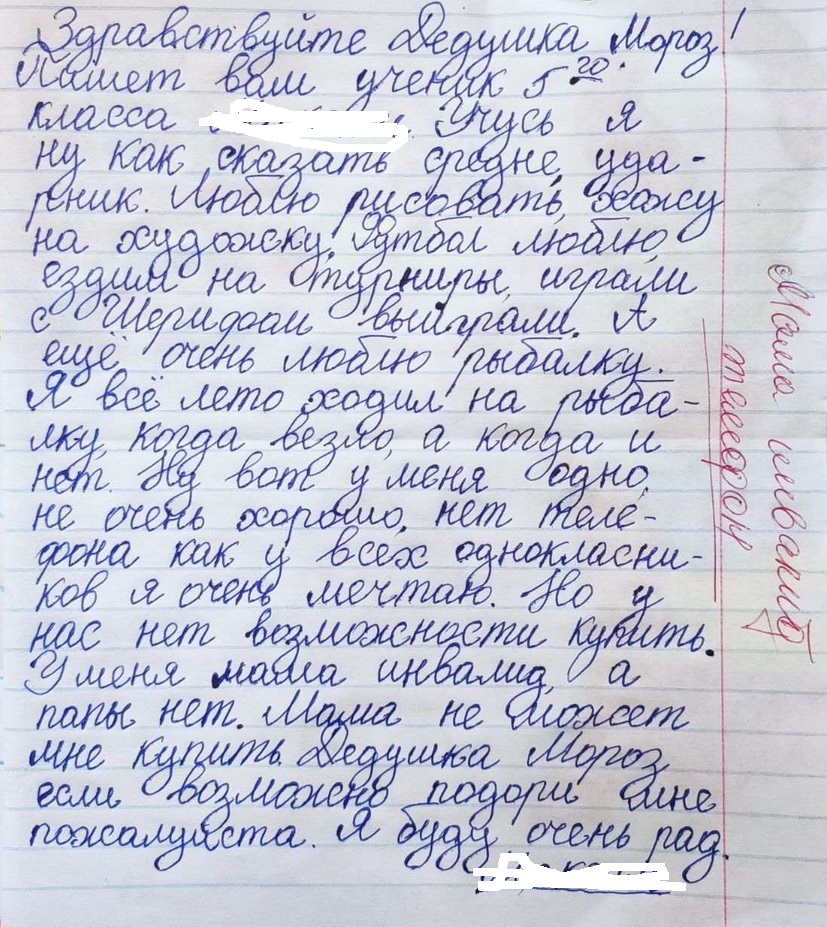 Здравствуйте Дедушка Мороз!
Пишет вам ученик 5го.
класса Учусь я
ну как сказать средне, уда-
рник. Люблю рисовать, хожу
на художку. Футбол люблю,
ездили на турниры, играли
с Шерифом выиграли. А
ещё очень люблю рыбалку.
Я всё лето ходил на рыба-
лку, когда везло, а когда и
нет. Ну вот у меня одно,
не очень хорошо, нет теле-
фона как у всех однокласни-
ков я очень мечтаю. Но у
нас нет возможности купить.
У меня мама инвалид, а
папы нет. Мама не может
мне купить. Дедушка Мороз
если возможно подори мне
пожалуйста. Я буду очень рад.
Мама инвалид
телефон